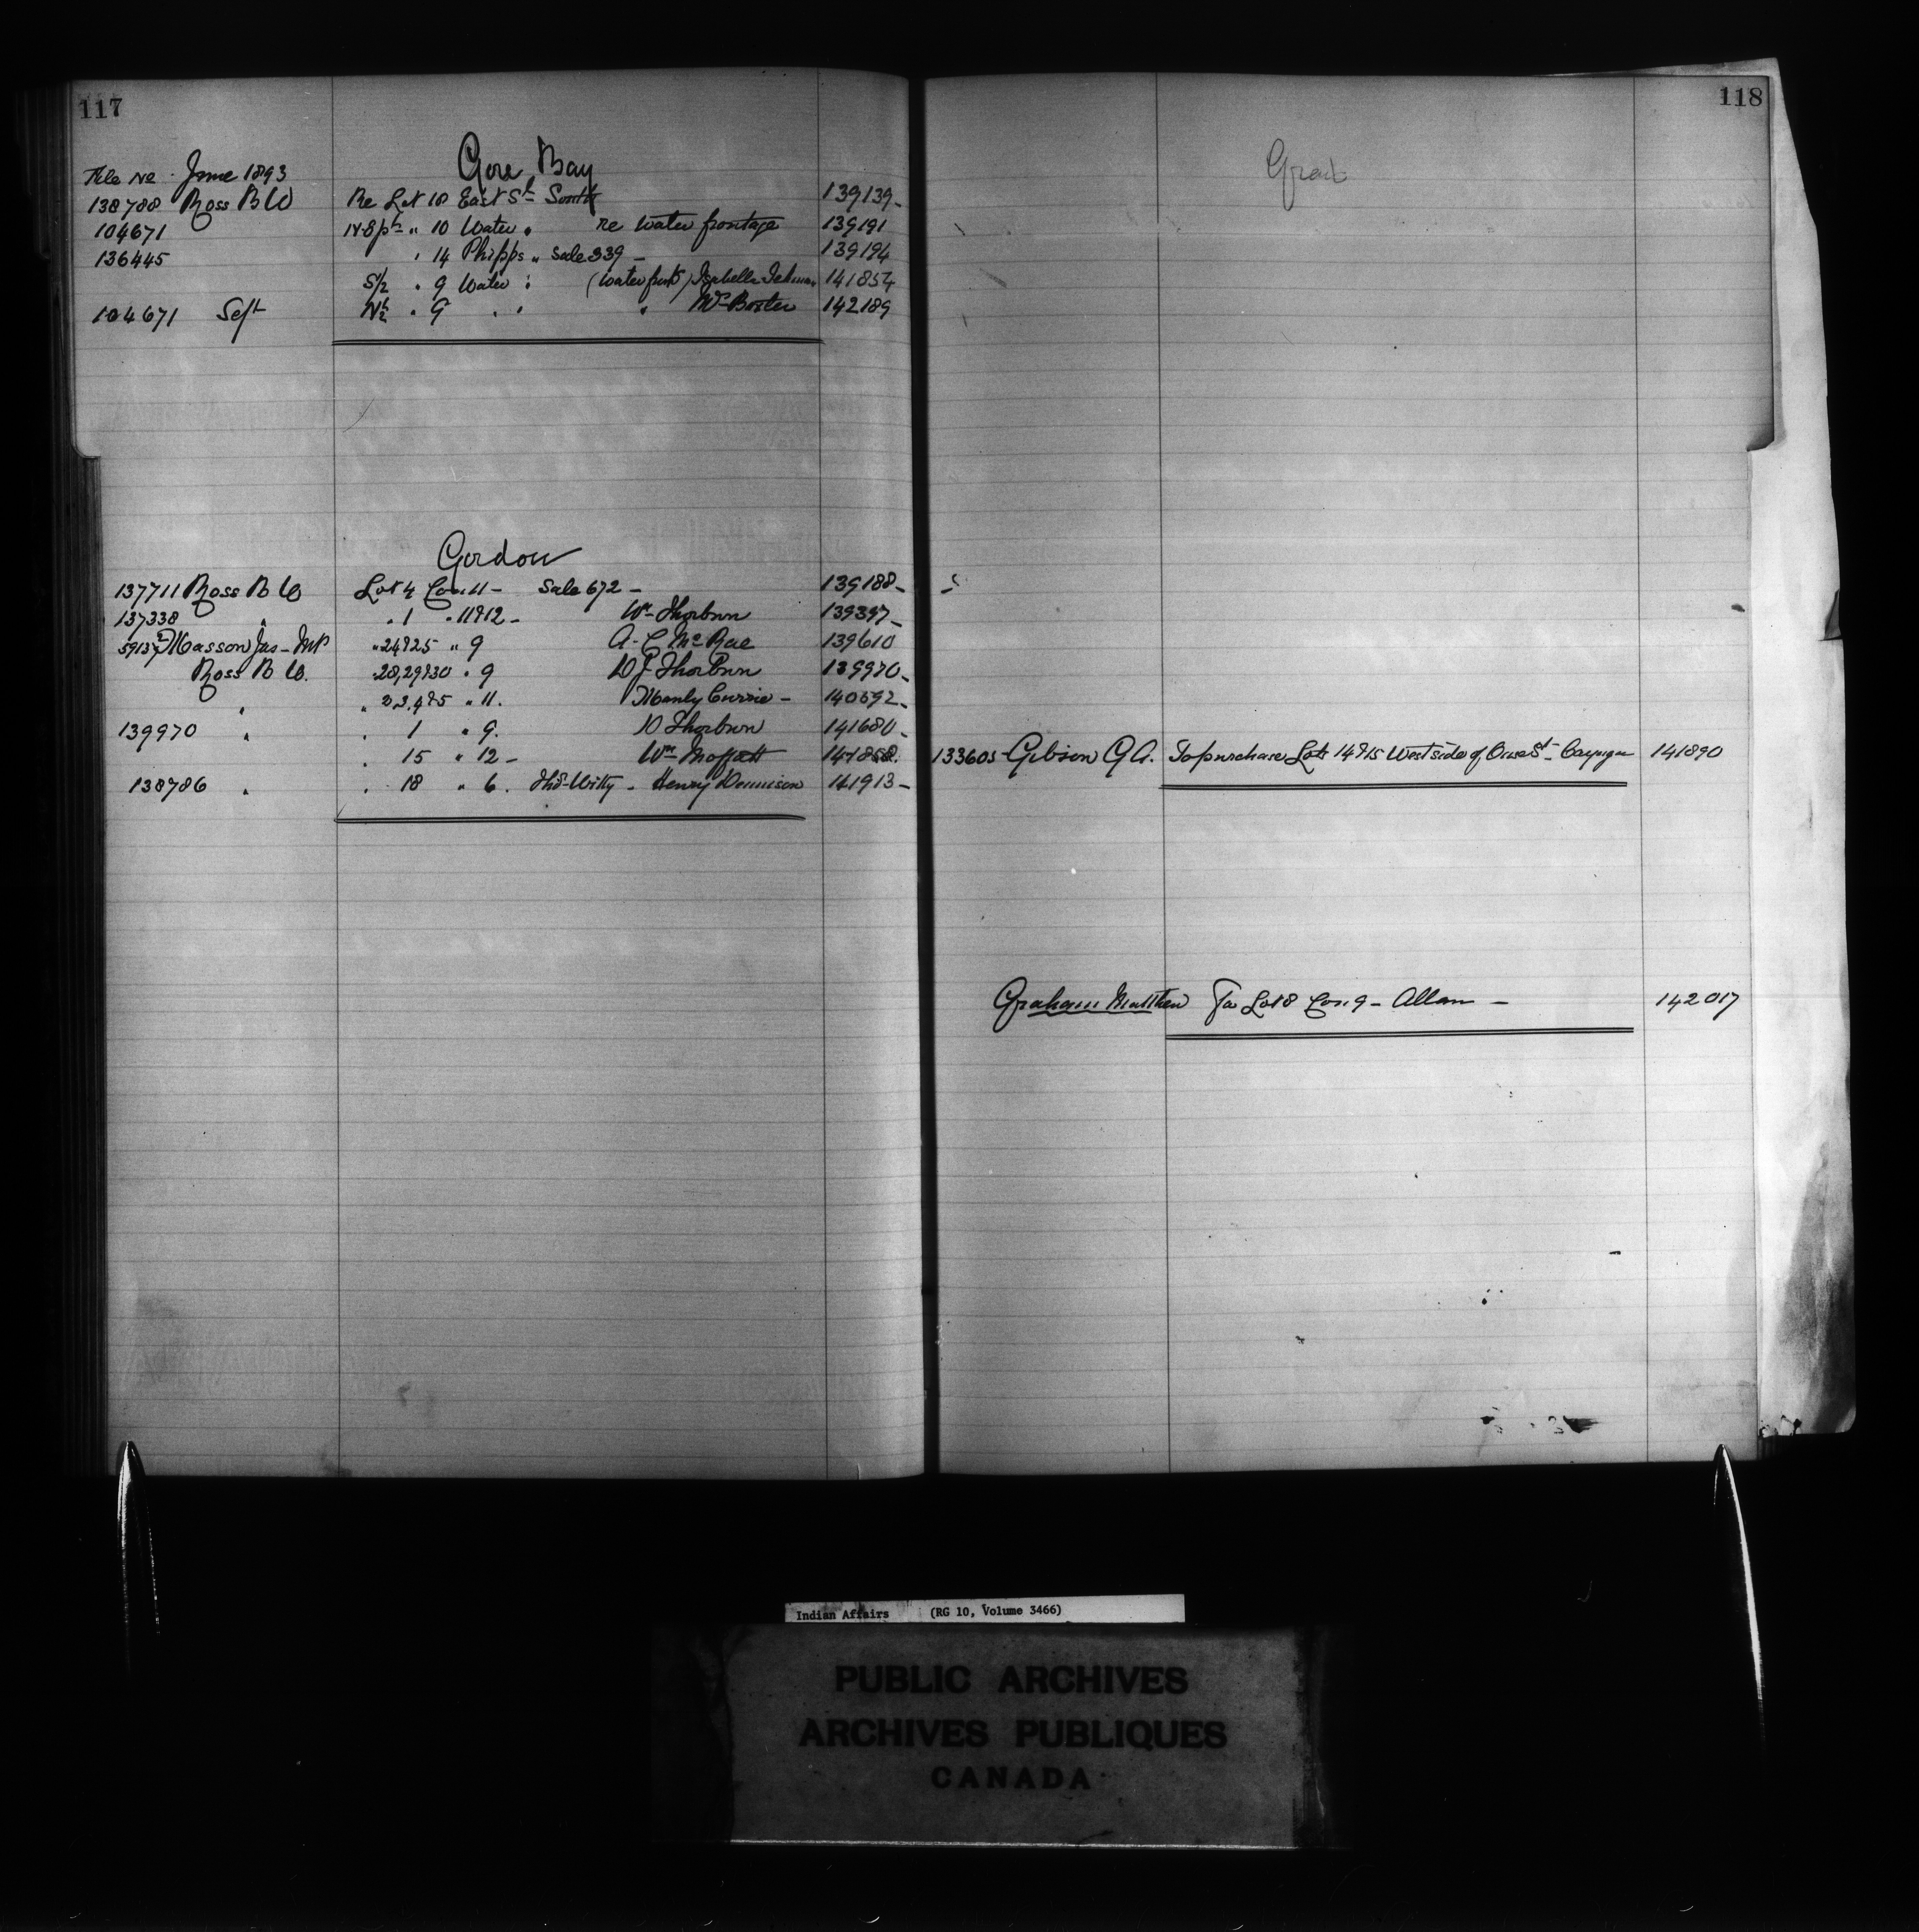 117
File No June 1893
Gore Bay
138788 Ross B W Re Lot 18 East St South 139139
104671 " 10 Water " re water frontage 139191
136445 " 14 Phipps " Sale 339 – 139194
S/2 " 9 Water " (Water front) Isabella 141854
104671 Sept N½ " 9 " " " 142189
Gordon
137711 Ross B W Lot 4 Con 11 – Sale 672 – 139188
137338 " " 1 " 11&12 – Wm Thorburn 139397
Masson Jas – MP " 24&25 " 9 A. C McRae 139610
Ross B W. " 28,29&30 " 9 D J Thorburn 139970
" " " 11. Manly Currie – 140592
139970 " " 1 " 9. D Thorburn 141680
" 15 " 12 – Wm Moffatt 141858
138786 " " 18 " 6. Thos Witty – Henry Dennison 141913
118
133605 Gibson G A. To purchase Lots 14&15 West side of St – Cayuga 141890
Graham Matthew For Lot 8 Con 9 – Allan – 142017
Indian Affairs (RG 10, Volume 3466)
PUBLIC ARCHIVES
ARCHIVES PUBLIQUES
CANADA